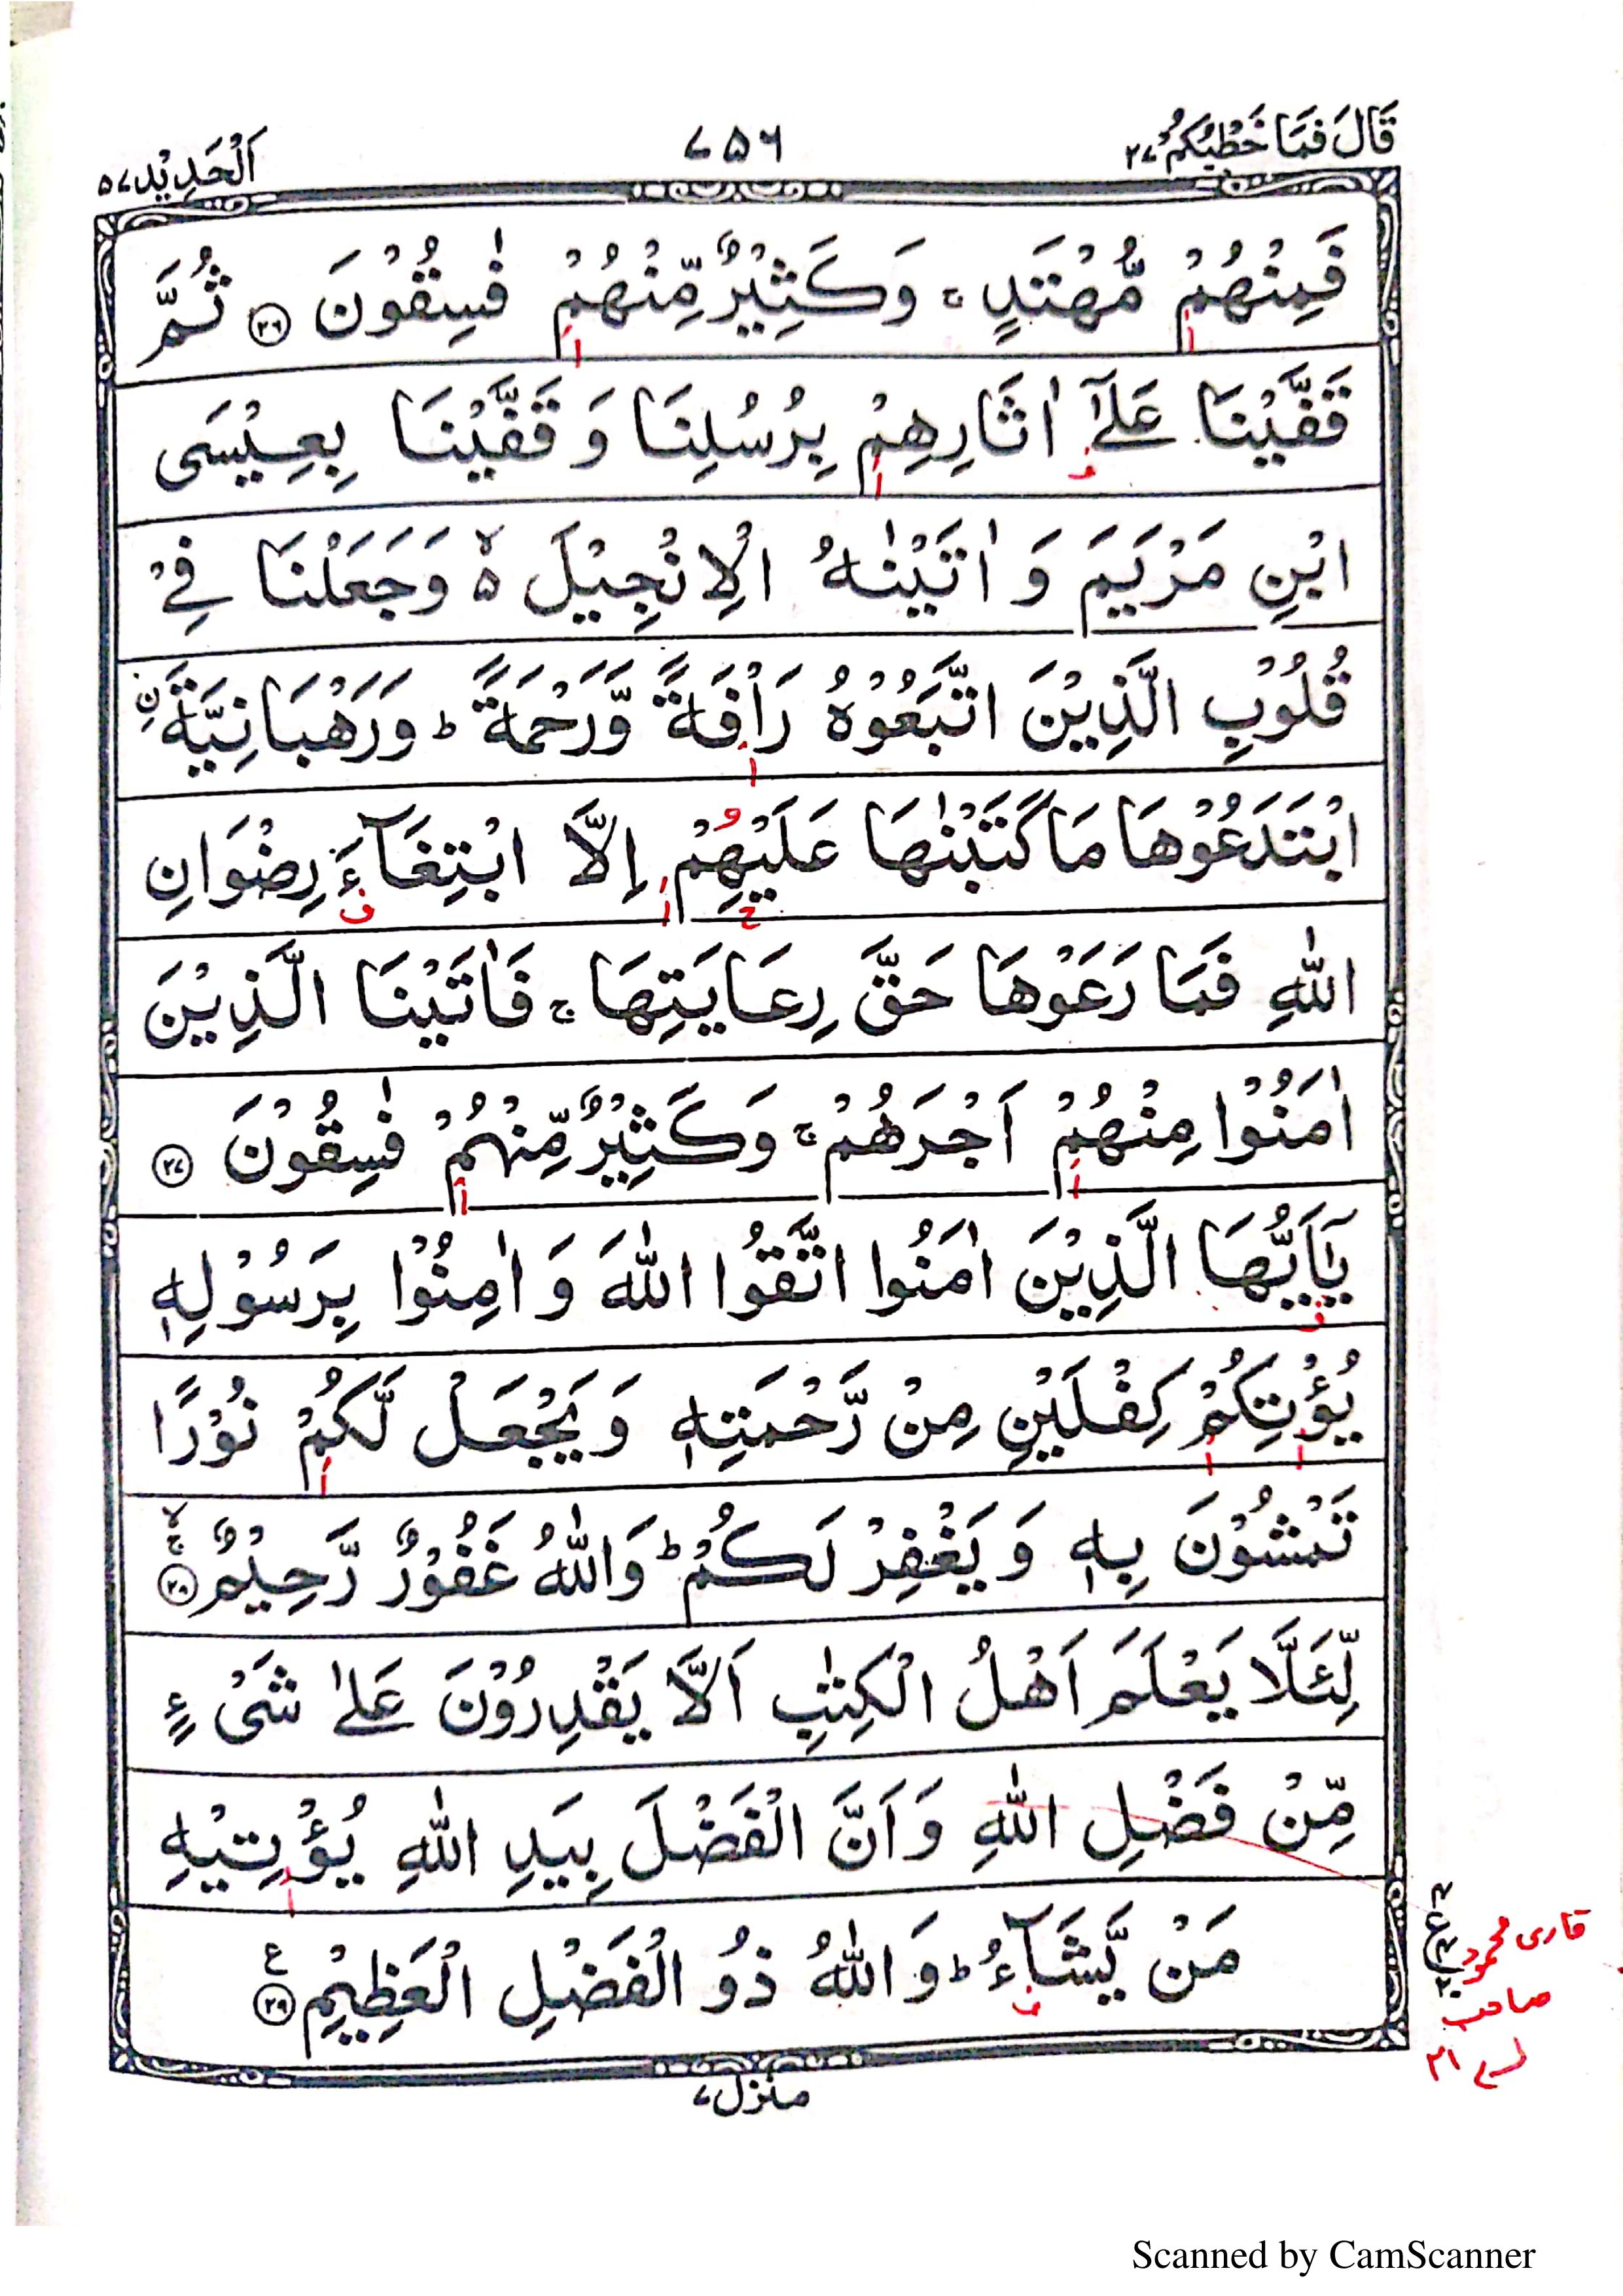 قَالَ فَمَا خَطْبُكُمْ ۲۷
۷۵۶
اَلْحَدِيْد ۵۷
فَمِنْهُمْ مُّهْتَدٍ ۚ وَكَثِيْرٌ مِّنْهُمْ فٰسِقُوْنَ ﴿۲۶﴾ ثُمَّ
قَفَّيْنَا عَلٰٓى اٰثَارِهِمْ بِرُسُلِنَا وَ قَفَّيْنَا بِعِيْسَى
ابْنِ مَرْيَمَ وَ اٰتَيْنٰهُ الْاِنْجِيْلَ ۵ۙ وَجَعَلْنَا فِيْ
قُلُوْبِ الَّذِيْنَ اتَّبَعُوْهُ رَاْفَةً وَّرَحْمَةً ؕ وَرَهْبَانِيَّةَ ۨ
ابْتَدَعُوْهَا مَا كَتَبْنٰهَا عَلَيْهِمْ اِلَّا ابْتِغَآءَ رِضْوَانِ
اللّٰهِ فَمَا رَعَوْهَا حَقَّ رِعَايَتِهَا ۚ فَاٰتَيْنَا الَّذِيْنَ
اٰمَنُوْا مِنْهُمْ اَجْرَهُمْ ۚ وَكَثِيْرٌ مِّنْهُمْ فٰسِقُوْنَ ﴿۲۷﴾
يٰۤاَيُّهَا الَّذِيْنَ اٰمَنُوا اتَّقُوا اللّٰهَ وَ اٰمِنُوْا بِرَسُوْلِهٖ
يُؤْتِكُمْ كِفْلَيْنِ مِنْ رَّحْمَتِهٖ وَ يَجْعَلْ لَّكُمْ نُوْرًا
تَمْشُوْنَ بِهٖ وَ يَغْفِرْ لَكُمْ ؕ وَاللّٰهُ غَفُوْرٌ رَّحِيْمٌ ﴿۲۸﴾ۚۙ
لِّئَلَّا يَعْلَمَ اَهْلُ الْكِتٰبِ اَلَّا يَقْدِرُوْنَ عَلٰى شَيْءٍ
مِّنْ فَضْلِ اللّٰهِ وَ اَنَّ الْفَضْلَ بِيَدِ اللّٰهِ يُؤْتِيْهِ
مَنْ يَّشَآءُ ؕ وَاللّٰهُ ذُو الْفَضْلِ الْعَظِيْمِ ﴿۲۹﴾ ع
قاری محمود
صاحب
منزل ۷
Scanned by CamScanner